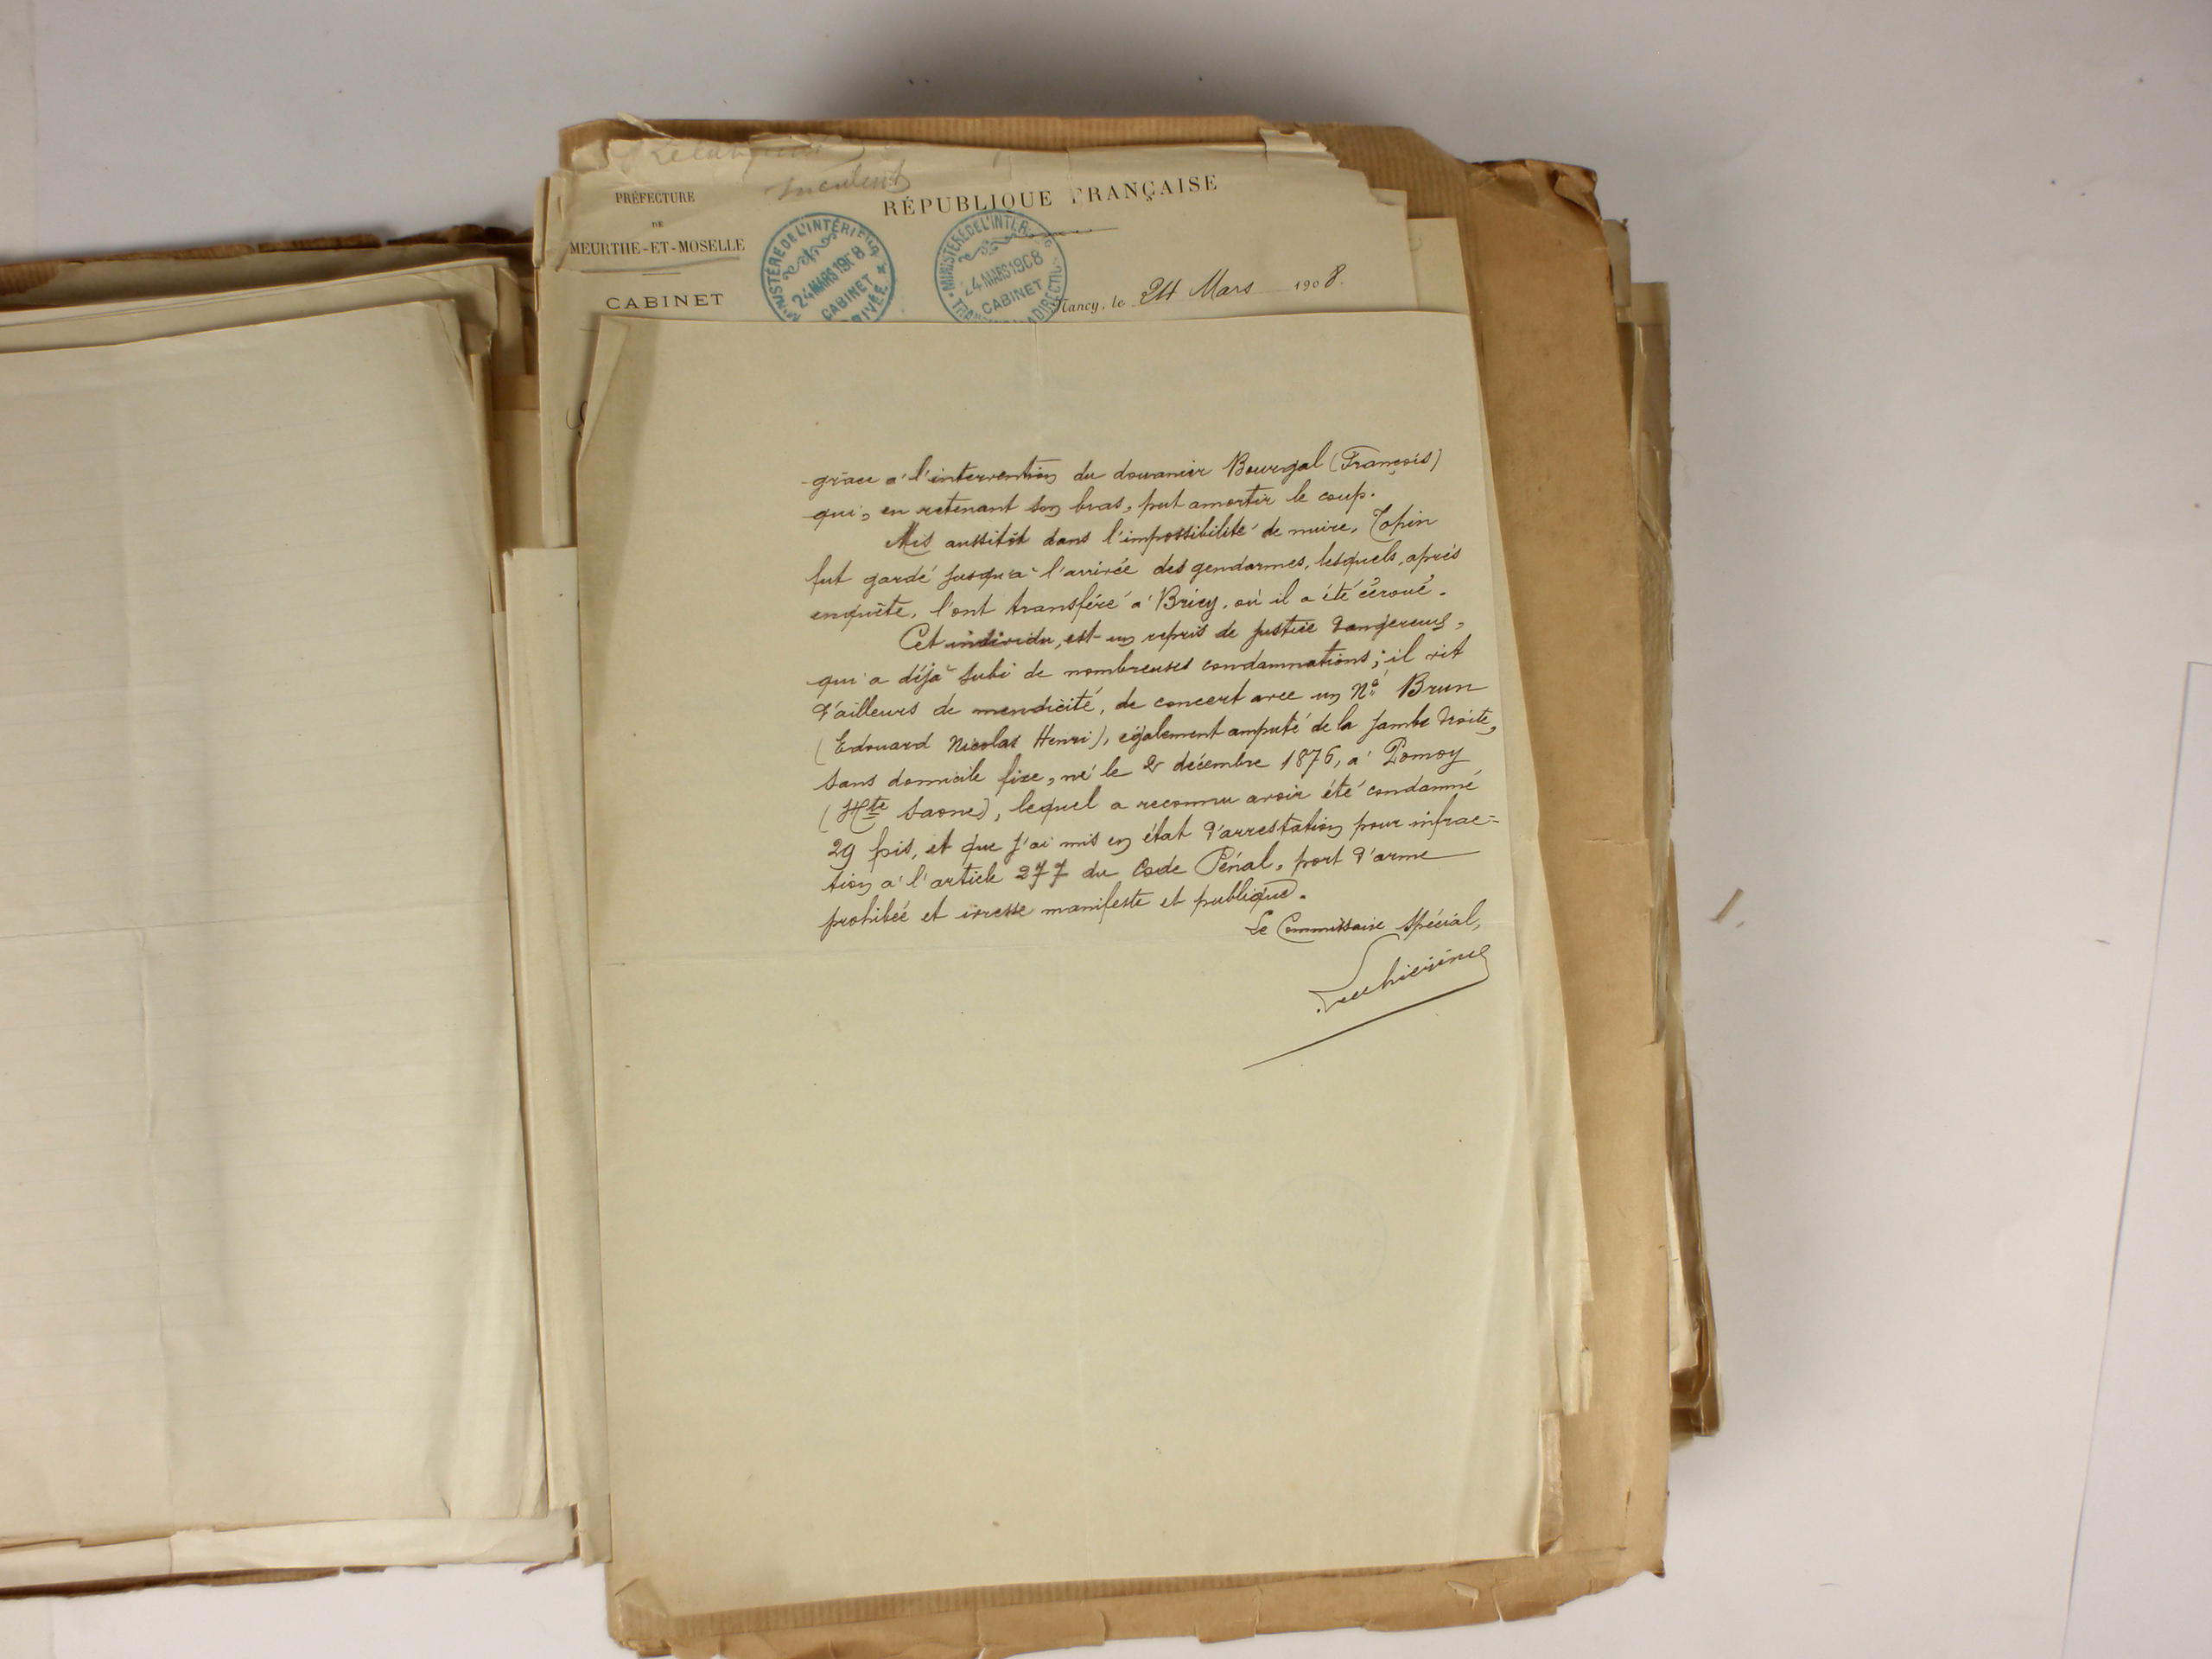 PRÉFECTURE
DE
MEURTHE-ET-MOSELLE
CABINET
RÉPUBLIQUE FRANÇAISE
MINISTÈRE DE L'INTÉRIEUR
24 MARS 1908
CABINET
MINISTÈRE DE L'INTÉR
24 MARS 1908
CABINET
Nancy, le 24 Mars 1908.
grâce à l'intervention du douanier Bourgal (François)
qui, en retenant son bras, put amortir le coup.
Mis aussitôt dans l'impossibilité de nuire, Topin
fut gardé jusqu'à l'arrivée des gendarmes, lesquels, après
enquête, l'ont transféré à Briey, où il a été écroué.
Cet individu, est un repris de justice dangereux,
qui a déjà subi de nombreuses condamnations; il vit
d'ailleurs de mendicité, de concert avec un Né Brun
(Edouard Nicolas Henri), également amputé de la jambe droite,
sans domicile fixe, né le 2 décembre 1876, à Pomoy
(Hte Saone), lequel a reconnu avoir été condamné
29 fois, et que j'ai mis en état d'arrestation pour infrac=
tion à l'article 277 du Code Pénal, port d'arme
prohibée et ivresse manifeste et publique.
Le Commissaire Spécial,